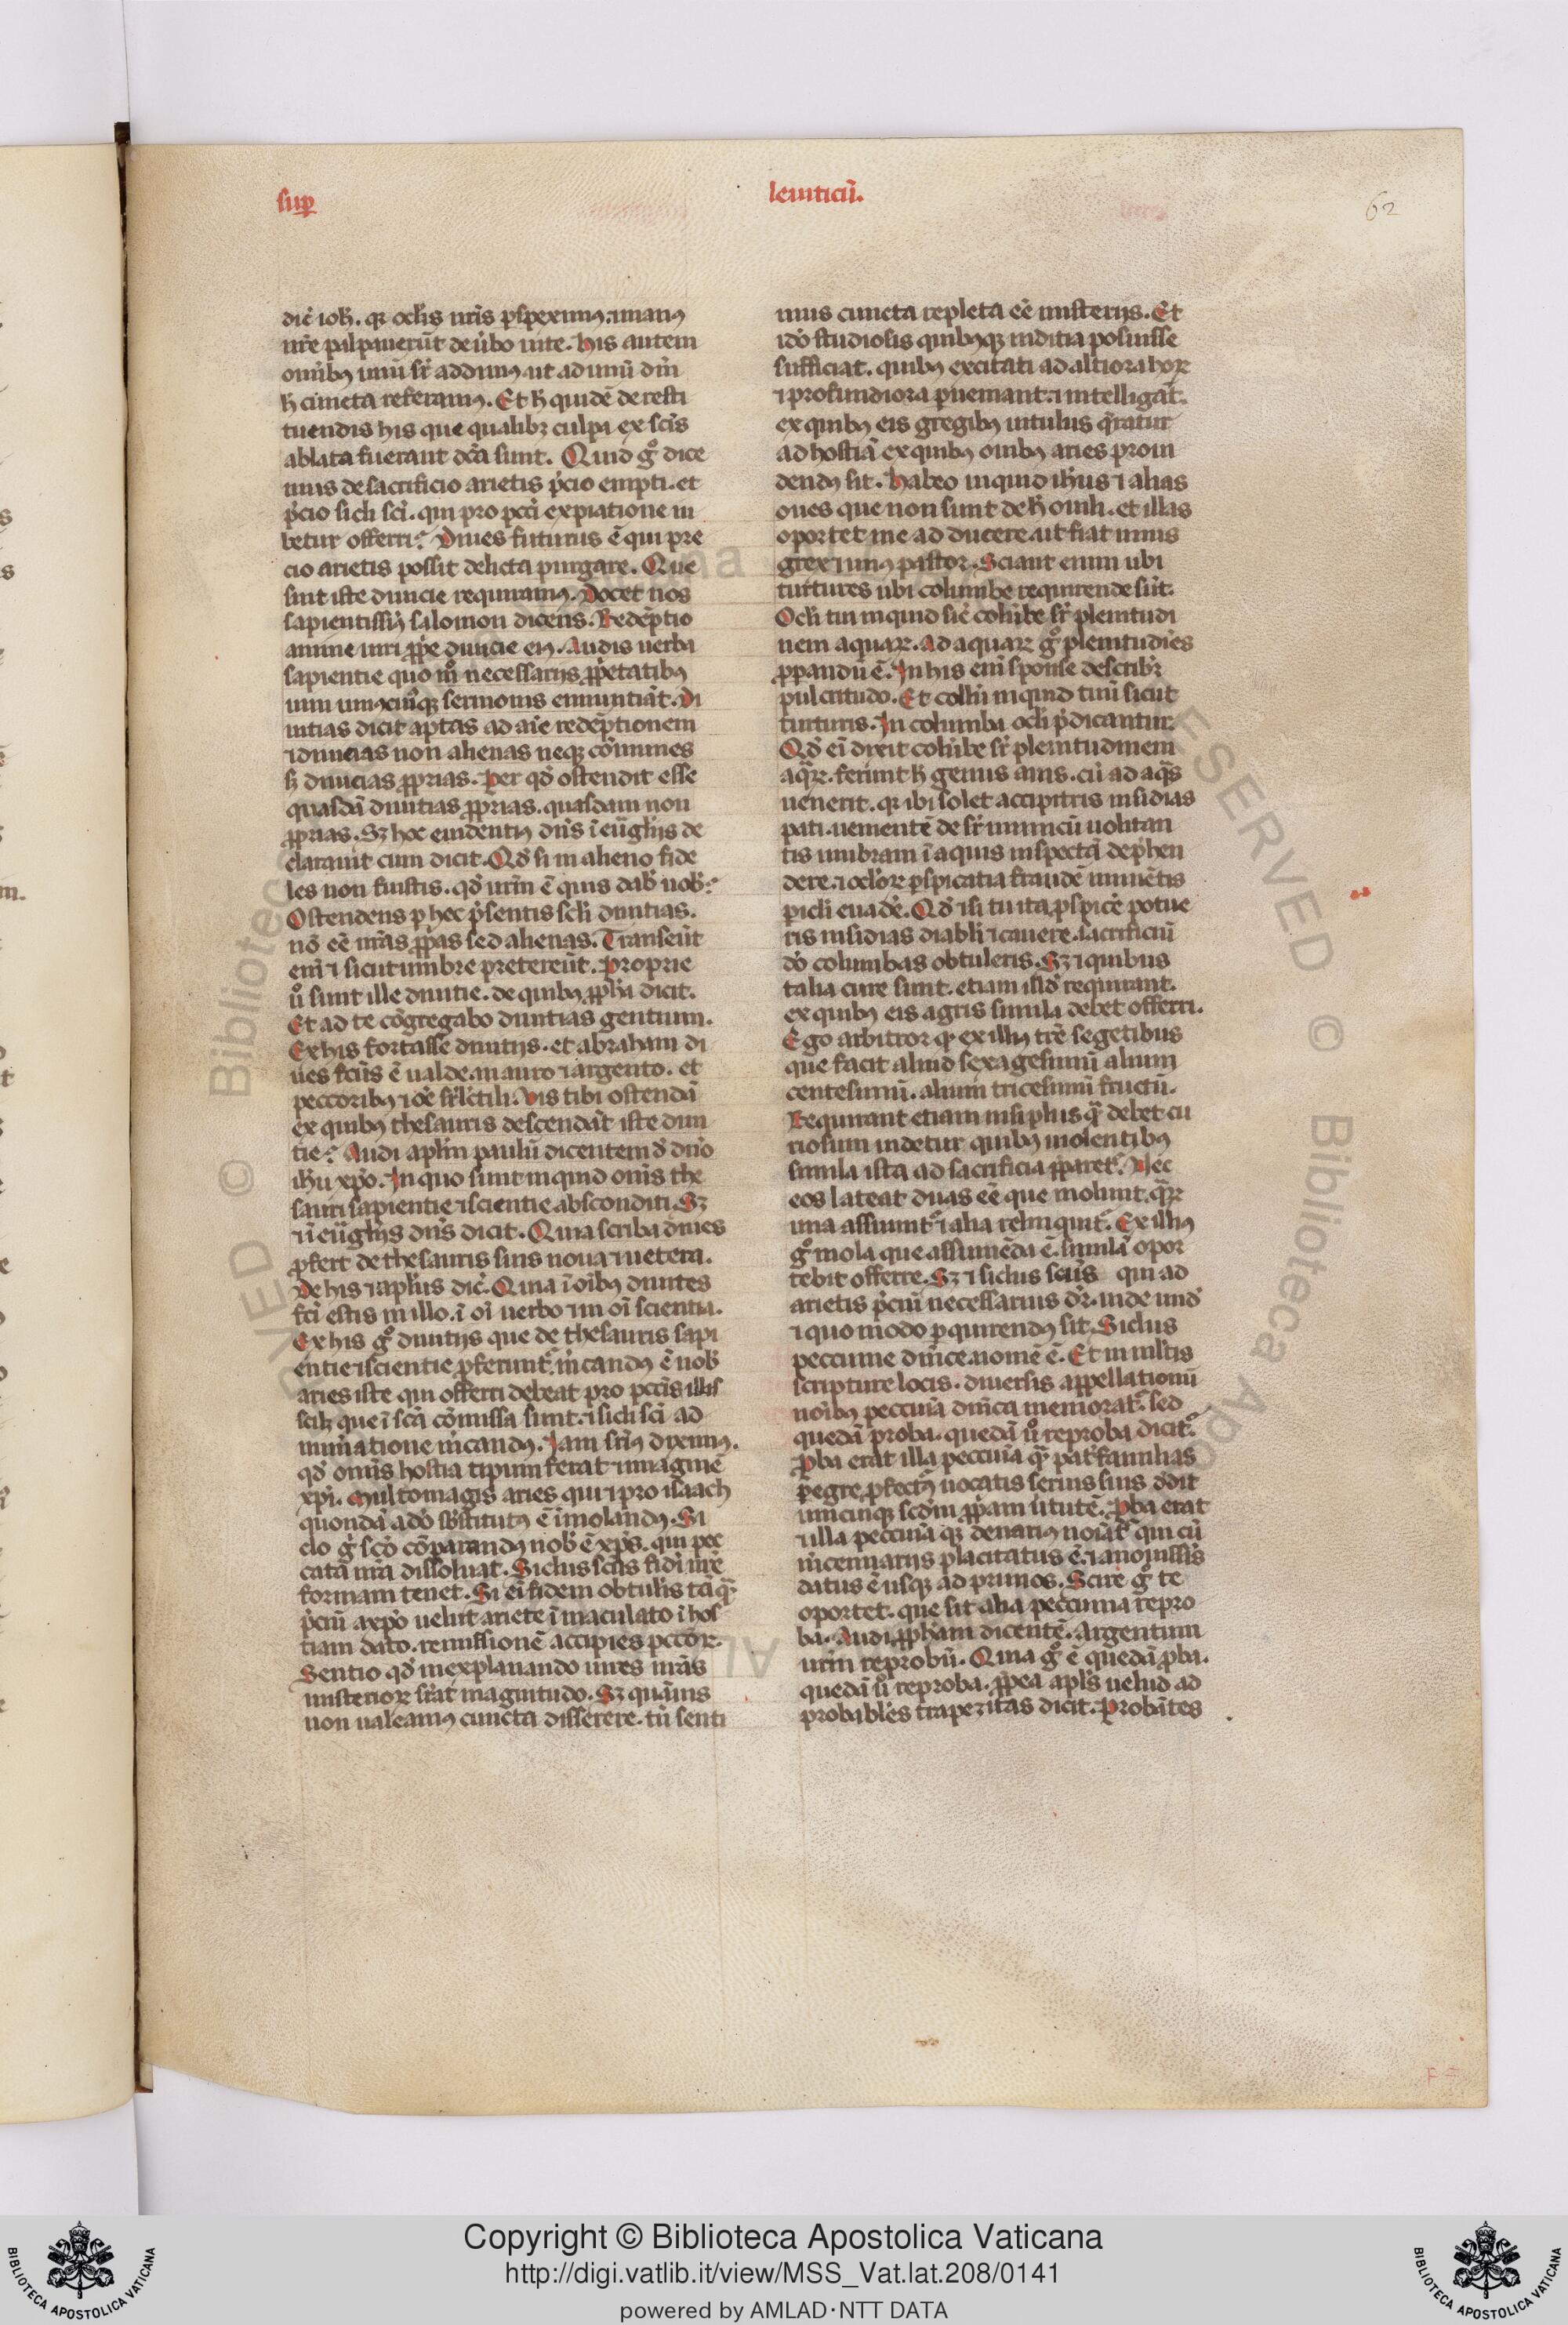 sup̱ leuiticū.
62
dic̄ ioh̄. qꝛ oc̄lis nr̄is ꝑspeximꝰ. ⁊ manꝰ
nr̄e palpauer̄ūt de ūbo uite. His autem
om̄ibꝰ unū sr̄ addimꝰ ut ad unū dn̄m
h̄ cuncta referamꝰ. Et h̄ quidē de resti
tuendis his que qualibꝫ culpa ex sc̄is
ablata fuerant dc̄a sunt. Quid gͦ dice
mus de sacrificio arietis p̄cio empti. et
p̄cio sicli sc̄i. qui pro pcc̄i expiatione iu
betur offerri? Diues futurus ē qui pre
cio arietis possit delicta purgare. Que
sint iste diuicie requiramꝰ. Docet nos
sapientissīꝰ salomon dicens. Redēptio
anime uiri ꝓp̄e diuicie eiꝰ. Audis uerba
sapientie quo mͦ necessarijs ꝓp̄etatibꝰ
uim uniꝰcuiꝰqꝫ sermonis enuntiāt. Di
uitias dicit aptas ad aīe redēptionem
⁊ diuicias non alienas neqꝫ cōmunes
sꝫ diuicias ꝓprias. Per qd̄ ostendit esse
quasdā diuitias ꝓprias. quasdam non
ꝓprias. Sꝫ hoc euidentiꝰ dn̄s ī eūgl̄ijs de
clarauit cum dicit. Qd̄ si in alieno fide
les non fuistis. qd̄ ur̄m ē quis dab̄ uob̄?
Ostendens ꝑ hec p̄sentis sc̄li diuitias.
nō eē nr̄as ꝓp̄as sed alienas. Transeūt
eni ⁊ sicut umbre pretereūt. Proprie
uͦ sunt ille diuitie. de quibꝰ ꝓph̄a dicit.
Et ad te cōgregabo diuitias gentium.
Ex his fortasse diuitijs. et abraham di
ues fc̄us ē ualde. in auro ⁊ argento. et
peccoribꝰ ⁊ oē sr̄lectili. Vis tibi ostendā
ex quibꝰ thesauris descendāt iste diui
tie? Audi apl̄m paulū dicentem d̄ dn̄o
ih̄u xp̄o. In quo sunt inquid om̄s the
sauri sapientie ⁊ scientie absconditi. Sꝫ
⁊ ī eūgl̄ijs dn̄s dicit. Quia scriba diues
ꝓfert de thesauris suis noua ⁊ uetera.
De his ⁊ apl̄us dic̄. Quia ī oībꝰ diuites
fc̄i estis in illo. ī oī uerbo ⁊ in oī scientia.
Ex his gͦ diuitijs que de thesauris sapi
entie ⁊ scientie ꝓferunt̄. m̄candꝰ ē nob̄
aries iste qui offerri debeat pro pcc̄is illis
scilꝫ que ī sc̄a cōmissa sunt. ⁊ sicli sc̄i ad
inuīatione m̄candꝰ. Jam sr̄iꝰ diximꝰ.
qd̄ omīs hostia tipum ferat ⁊ imaginē
xp̄i. Multo magis aries qui ⁊ pro isaach
quondā a dō sb̄stitutꝰ ē īmolandꝰ. Si
clo gͦ sc̄o cōparandꝰ nob̄ ē xp̄s. qui pec
cata nr̄a dissoluat. Siclus sc̄us fidī nr̄e
formam tenet. Si ei fidem obtul̄is tāqꝫ
p̄ciū a xp̄o uelut ariete īmaculato ī hos
tiam dato. remissionē accipies pcc̄oꝝ.
Sentio qd̄ in explanando uires nr̄as
misterioꝝ sr̄at magnitudo. Sꝫ quāuis
non ualeamꝰ cuncta disserere. tn̄ senti
mus cuncta repleta eē misterijs. Et
idō studiosis quibꝰqꝫ inditia posuisse
sufficiat. quibꝰ excitati ad altiora hoꝝ
⁊ profundiora ꝑueniant. ⁊ intelligāt.
ex quibꝰ eis gregibꝰ uitulus q̄ratur
ad hostiā ex quibꝰ ouibꝰ aries proui
dendꝰ sit. Habeo inquid ih̄us ⁊ alias
oues que non sunt de h̄ ouili. et illas
oportet me adducere. ut fiat unus
grex ⁊ unꝰ pastor. Sciant enim ubi
turtures ubi columbe requirende sūt.
Oc̄li tui inquid sic̄ colūbe sr̄ plenitudi
nem aquaꝝ. Ad aquaꝝ gͦ plenitudīes
ꝓpandū ē. In his eni sponse describit̄
pulcritudo. Et collū inquid tuū sicut
turturis. In columba oc̄li p̄dicantur.
Qd̄ eī dixit colūbe sr̄ plenitudinem
aqͣꝝ. ferunt h̄ genus auis. cū ad aqͣs
uenerit. qꝛ ibi solet accipitris insidias
pati. uementē de sr̄ inimicū uolitan
tis umbram ī aquis inspectā dep̄hen
dere. ⁊ oc̄loꝝ ꝑspicatia fraudē iminētis
ꝑicl̄i euadē. Qd̄ ⁊ si tu ita ꝑspicē potue
ris insidias diabl̄i ⁊ cauere. sacrificiū
dō columbas obtuleris. Sꝫ ⁊ quibus
talia cure sunt. etiam ill̄d requirant.
ex quibꝰ eis agris simila debet offerri.
Ego arbitror qꝫ ex illiꝰ tr̄e segetibus
que facit aliud sexagesimū alium
centesimū. alium tricesimū fructū.
Requirant etiam nisi plus qͣ debet cu
riosum uidetur quibꝰ molentibꝰ
simila ista ad sacrificia ꝓparet̄. Nec
eos lateat duas eē que molunt. qͣꝝ
una assumit̄ ⁊ alia relinquit̄. Ex illiꝰ
gͦ mola que assumēda ē. similā opor
tebit offerre. Sꝫ ⁊ siclus sc̄us qui ad
arietis p̄ciū necessarius dr̄. uide und̄
⁊ quo modo ꝑquirendꝰ sit. Siclus
peccunie dn̄ice. nomē ē. Et in ml̄tis
scripture locis. diuersis appellationū
noībꝰ peccunia dn̄ica memorat̄. sed
quedā proba. quedā uͦ reproba dicit̄.
Ꝓba erat illa peccunia qͣ pat̄familias
ꝑegre ꝓfectꝰ uocatis seruis suis d̄dit
unicuiqꝫ scdm̄ ꝓp̄am ūtutē. Ꝓba erat
⁊ illa peccunia qꝫ denariꝰ noīat̄ qui cū
m̄cennarijs placitatus ē. ⁊ a nouissīs
datus ē usqꝫ ad primos. Scire gͦ te
oportet. que sit alia peccunia repro
ba. Audi ꝓph̄am dicentē. Argentum
ur̄m reprobū. Quia gͦ ē quedā ꝓba.
quedā uͦ reproba. ꝓp̄ea apl̄s uelud ad
probabl̄es trapezitas dicit. Probātes
Copyright © Biblioteca Apostolica Vaticana
http://digi.vatlib.it/view/MSS_Vat.lat.208/0141
powered by AMLAD·NTT DATA
BIBLIOTECA APOSTOLICA VATICANA
BIBLIOTECA APOSTOLICA VATICANA